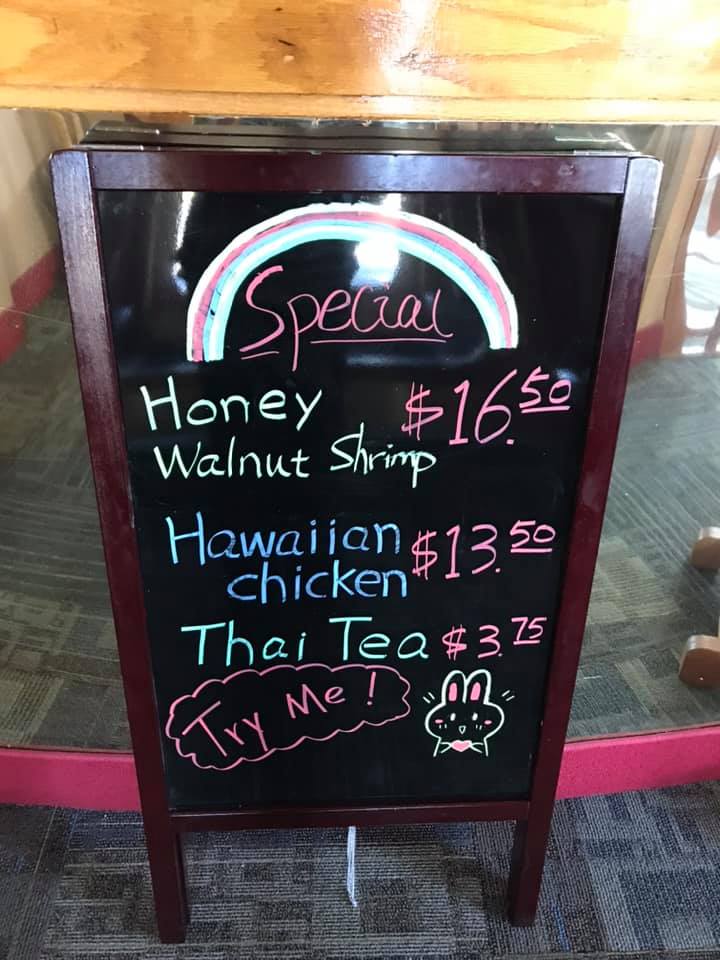 Special
Honey $16.50
Walnut Shrimp
Hawaiian $13.50
chicken
Thai Tea $3.75
Try Me!